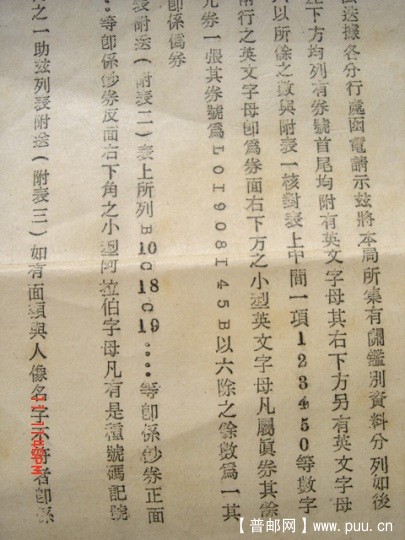 迭據各分行處函電請示茲將本局所集有關鑑別資料分列如後
左下方均列有券號首尾均附有英文字母其右下方另有英文字母
以所餘之數與附表一核對表上中間一項123450等數字
兩行之英文字母卽爲券面右下方之小型英文字母凡屬眞券其餘
元券一張其券號爲LOI908I45B以六除之餘數爲一其
卽係僞券
表附送(附表二)表上所列B10C18C19....等卽係鈔券正面
....等卽係鈔券反面右下角之小型阿拉伯字母凡有是種號碼記號
之一助茲列表附送(附表三)如有面額與人像名字不符者卽係
【普邮网】www.puu.cn